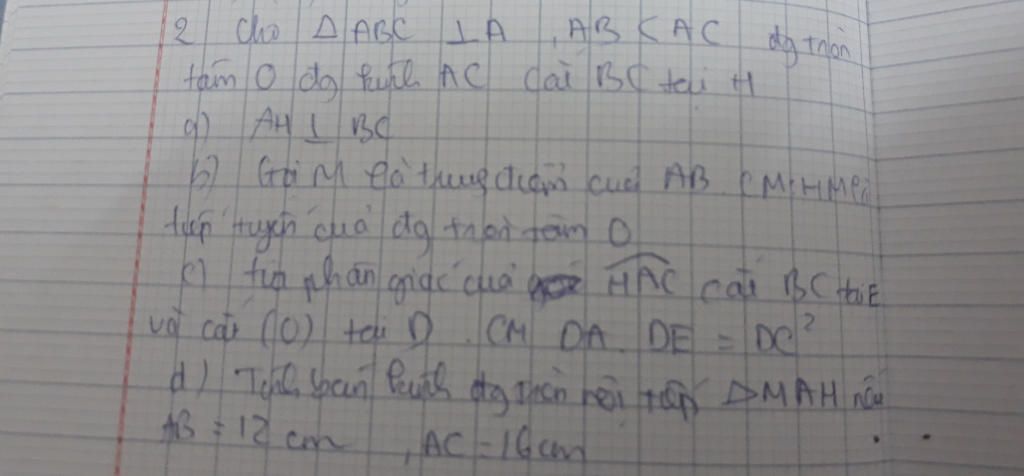 2) Cho △ ABC ⊥ A , AB < AC đg tròn
tâm O đg kính AC cắt BC tại H
a) AH ⊥ BC
b) Gọi M là trung điểm của AB. CM: HM là
tiếp tuyến của đg tròn tâm O
c) tia phân giác của HAC cắt BC tại E
và cắt (O) tại D. CM DA. DE = DC²
d) Tính bán kính đg tròn nội tiếp △MAH nếu
AB = 12 cm , AC = 16 cm